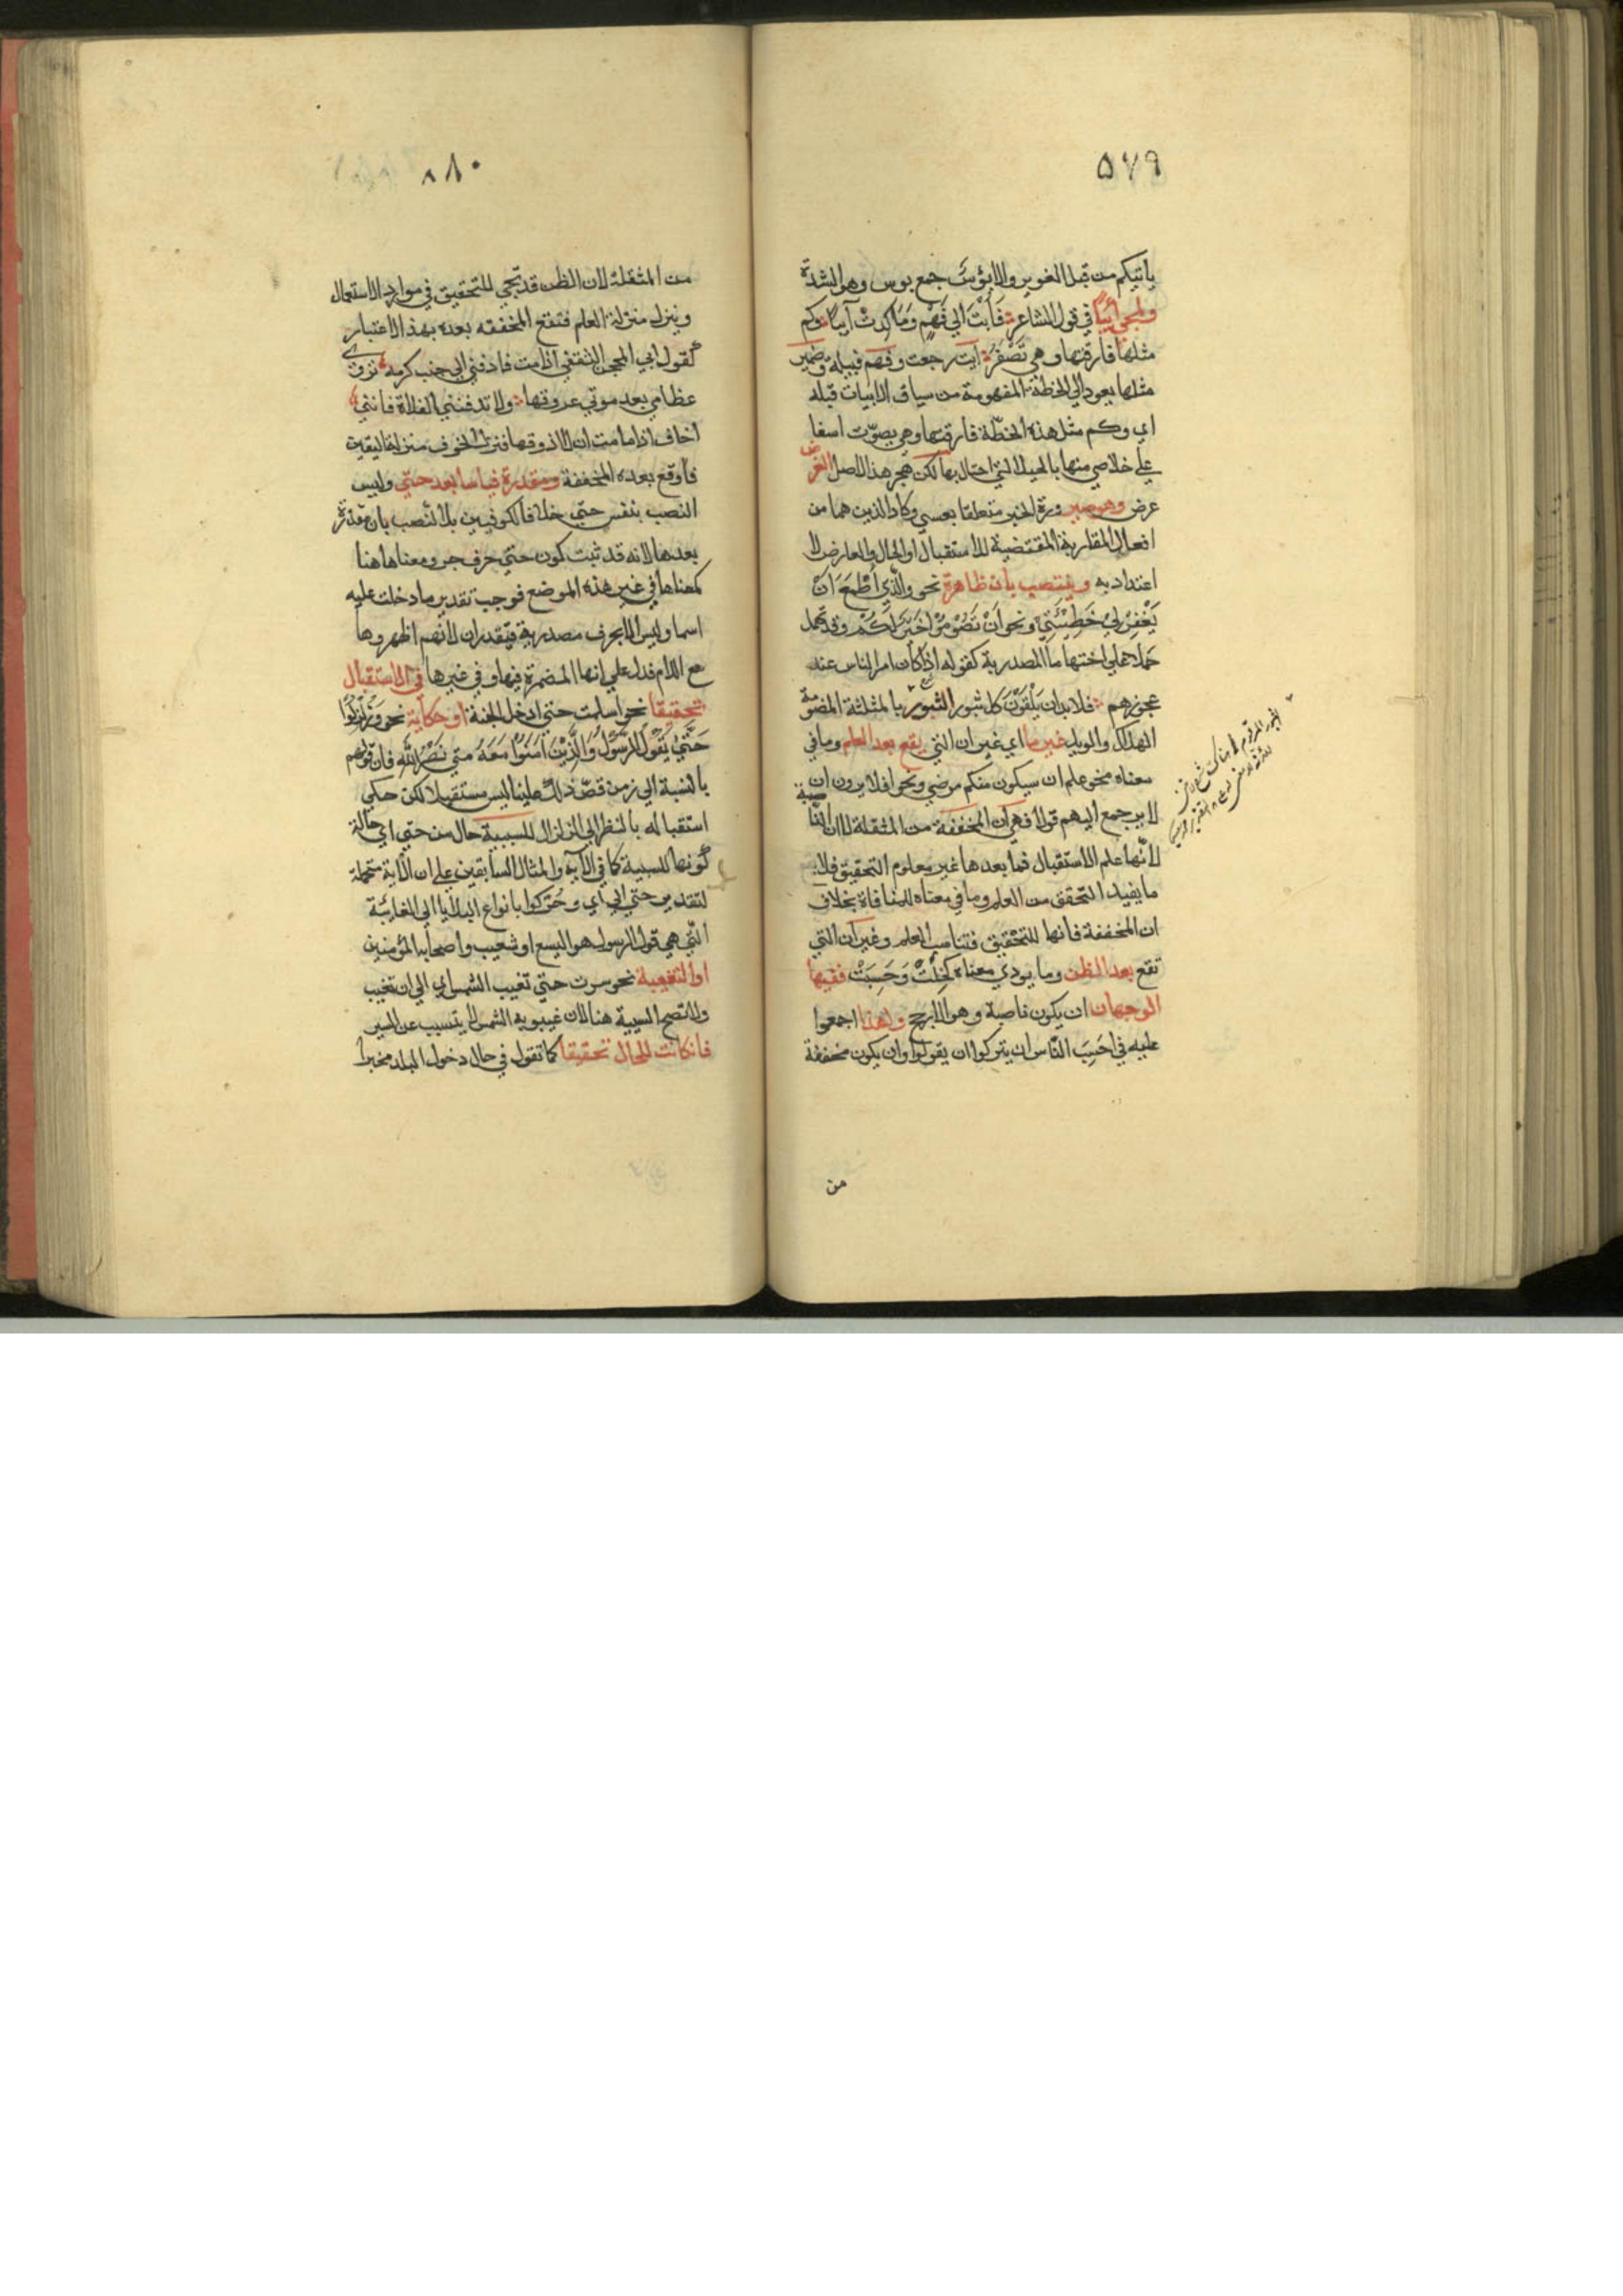 ٥٧٩
ياتيكم من قبل الغوير والابؤس جمع بوس وهو الشدة
ولمجي آيبًا في قول الشاعر فَأُبْتُ الي فَهْمٍ وَمَا كِدتُ آيبا وكم
مثلها فارقتها وهي تَصْفَرُ ابت رجعت وفهم قبيلة وضمير
مثلها يعود الي الخطة المفهومة من سياق الابيات قبله
اي وكم مثل هذه الخطّة فارقتها وهي يصوّت اسفا
علي خلاصي منها بالحيلة التي احتال بها لكن هجر هذا الاصل لغرض
عرض وهو صيرورة الخبر متعلقا بعسي وكاد الذين هما من
افعال المقاربة المقتضية للاستقبال او الحال والعارض لا
اعتداد به وينتصب بان ظاهرة نحو والَّذِي أَطْمَعُ اَنْ
يَغْفِرَ لِي خَطِيْئَتِي ونحو اَنْ تَصُوْمُوْا خَيْرٌ لَكُمْ وقد تهمل
حملا علي اختها ما المصدرية كقوله اذا كان امر الناس عند
عجوزهم فلابد ان يَلْقَوْنَ كل ثبور الثبور بالمثلثة المضمومة
الهلاك والويل غير ما اي غير ان التي يقع بعد العلم وما في
معناه نحو علم ان سيكون منكم مرضي ونحو افلا يرون ان
لا يرجع اليهم قولا فهي ان المخففة من المثقلة لا ان الناصبة
لانّها علم الاستقبال فما بعدها غير معلوم التحقيق فلا
ما يفيد التحقق من العلم وما في معناه للمنافاة بخلاف
ان المخففة فانها للتحقيق فتناسب العلم وغير ان التي
تقع بعد الظن وما يودي معناه كَخِلْتُ وَحَسِبَتْ ففيها
الوجهان ان يكون ناصبة وهو الارجح ولهذا اجمعوا
عليه في اَحَسِبَ النّاس ان يتركوا ان يقولوا وان يكون مخففة
من
٨٨٠
من المثقلة لان الظن قد تجي للتحقيق في موارد الاستعمال
وينزل منزلة العلم فتقع المخففه بعده بهذا الاعتبار
كقول ابي المحجن الثقفي اذا مت فادفني الي جنب كرمه تروي
عظامي بعد موتي عروقها ولا تدفنني بالفلاة فانني
اخاف اذا ما مت ان لا اذوقها فنزل الخوف منزلة اليقين
فاوقع بعده المخففة ومقدرة قياسا بعد حتي وليس
النصب بنفس حتي خلافا لكوفيين بل النصب بان مقدرة
بعدها لانه قد ثبت كون حتي حرف جر ومعناها هنا
كمعناها في غير هذه الموضع فوجب تقدير ما دخلت عليه
اسما وليس الا بحرف مصدرية فيقدر ان لانهم اظهروها
مع اللام فدل علي انها المضمرة فيها وفي غيرها في الاستقبال
تحقيقا نحو اسلمت حتي ادخل الجنة او حكاية نحو وَزُلْزِلُوْا
حَتّيٰ يَقُوْلُ الرَّسُوْلُ وَالَّذِيْنَ اٰمَنُوْا مَعَهُ متيٰ نَصْرُ اللّٰهِ فان قولهم
بالنسبة الي زمن قصّ ذلك علينا ليس مستقبلا لكن حكي
استقباله بالنظر الي الزلزال للسببية حال من حتي اي حالة
كونها للسببية كما في الاية والمثال السابقين علي ان الاية محتملة
لتقدير حتي الي اي وحُرِّكوا بانواع البلايا الي الغاية
التّي هي قول الرسول هو اليسع او شعيب واصحابه المؤمنين
او التقعيبة نحو سرت حتي تغيب الشمس اي الي ان تغيب
ولا تصح السببية هنا لان غيبوبة الشمس لا يتسبب عن السير
فان كانت للحال تحقيقا كما تقول في حال دخول البلد مخبرا